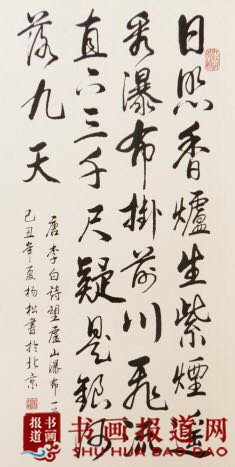 日照香爐生紫煙遥
看瀑布掛前川飛流
直下三千尺疑是銀河
落九天
唐李白詩望廬山瀑布一首
己丑年夏杨松書於北京
书画
报道
书画报道网
SHU HUA BAO DAO